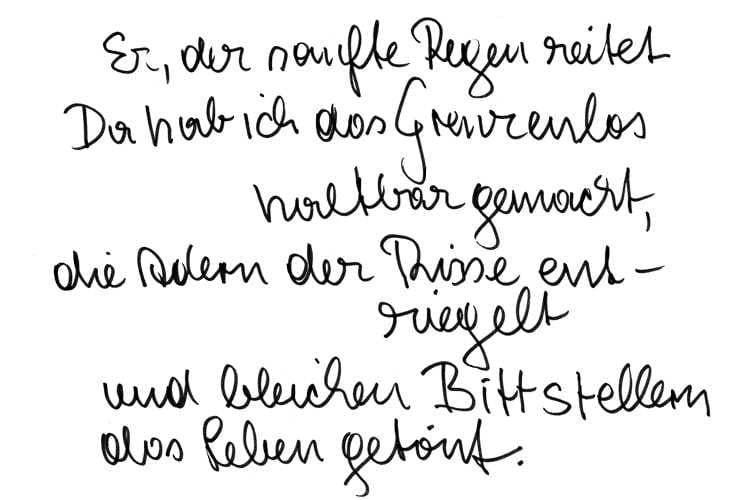 Er, der sanfte Regen reitet
Da hab ich das Grenzenlos
haltbar gemacht,
die Adern der Risse ent-
riegelt
und bleichen Bittstellern
das Leben getönt.